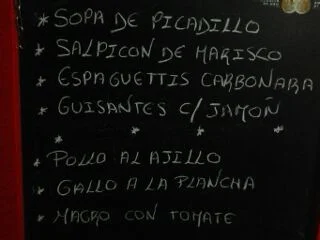 * SOPA DE PICADILLO
* SALPICON DE MARISCO
* ESPAGUETTIS CARBONARA
* GUISANTES C/ JAMOÑ
* * * *
* POLLO AL AJILLO
* GALLO A LA PLANCHA
* MAGRO CON TOMATE